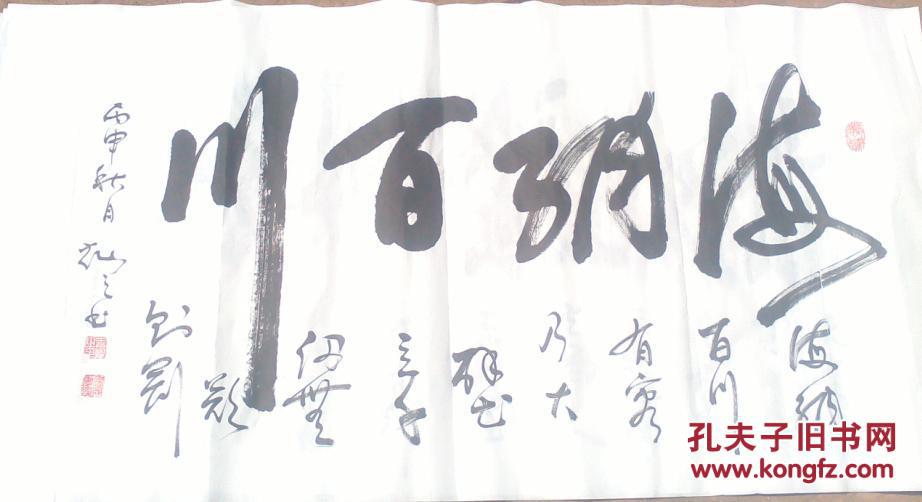 海纳百川
海纳
百川
有容
乃大
壁立
千仞
无欲
则刚
丙申秋月
孔夫子旧书网
www.kongfz.com